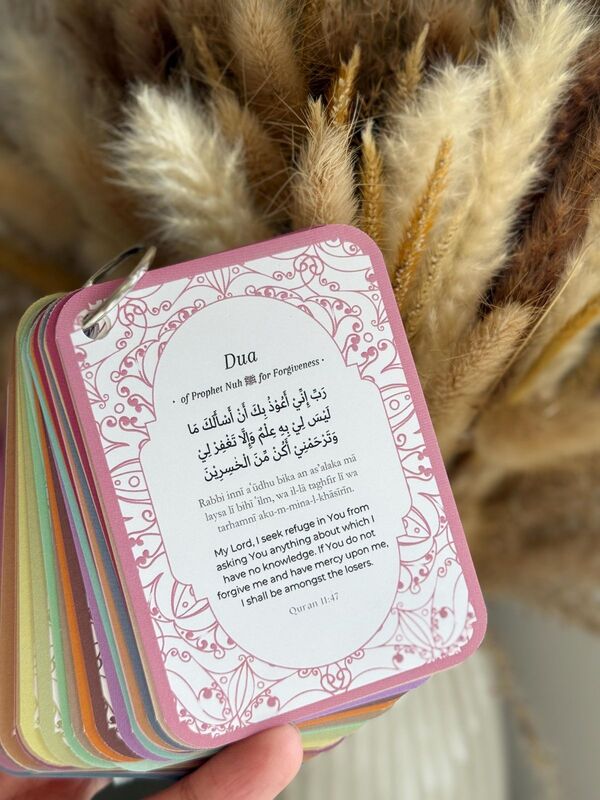 Dua
· of Prophet Nuh ﷺ for Forgiveness ·
رَبِّ إِنِّيْ أَعُوْذُ بِكَ أَنْ أَسْأَلَكَ مَا
لَيْسَ لِيْ بِهِ عِلْمٌ وَإِلَّا تَغْفِرْ لِيْ
وَتَرْحَمْنِيْ أَكُنْ مِّنَ الْخٰسِرِيْنَ
Rabbi innī aʿūdhu bika an as'alaka mā
laysa lī bihī ʿilm, wa il-lā taghfir lī wa
tarhamnī aku-m-mina-l-khāsirīn.
My Lord, I seek refuge in You from
asking You anything about which I
have no knowledge. If You do not
forgive me and have mercy upon me,
I shall be amongst the losers.
Qur'an 11:47